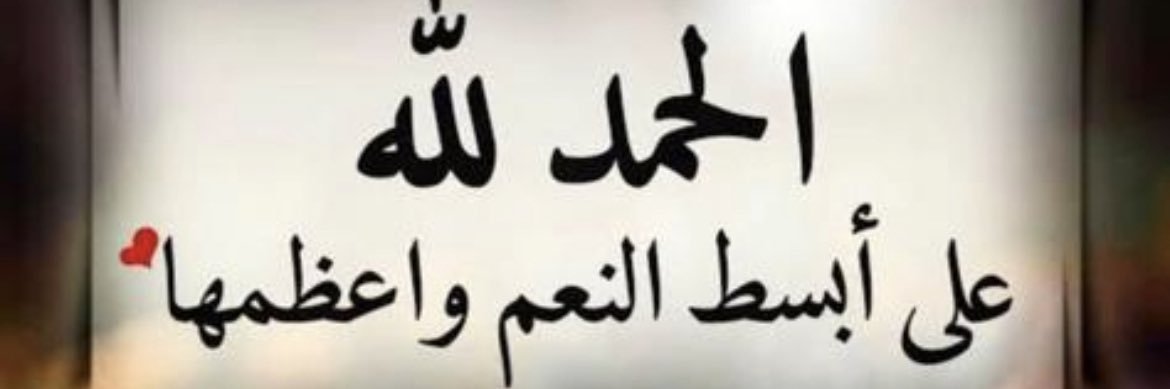 الحمد لله
على أبسط النعم واعظمها